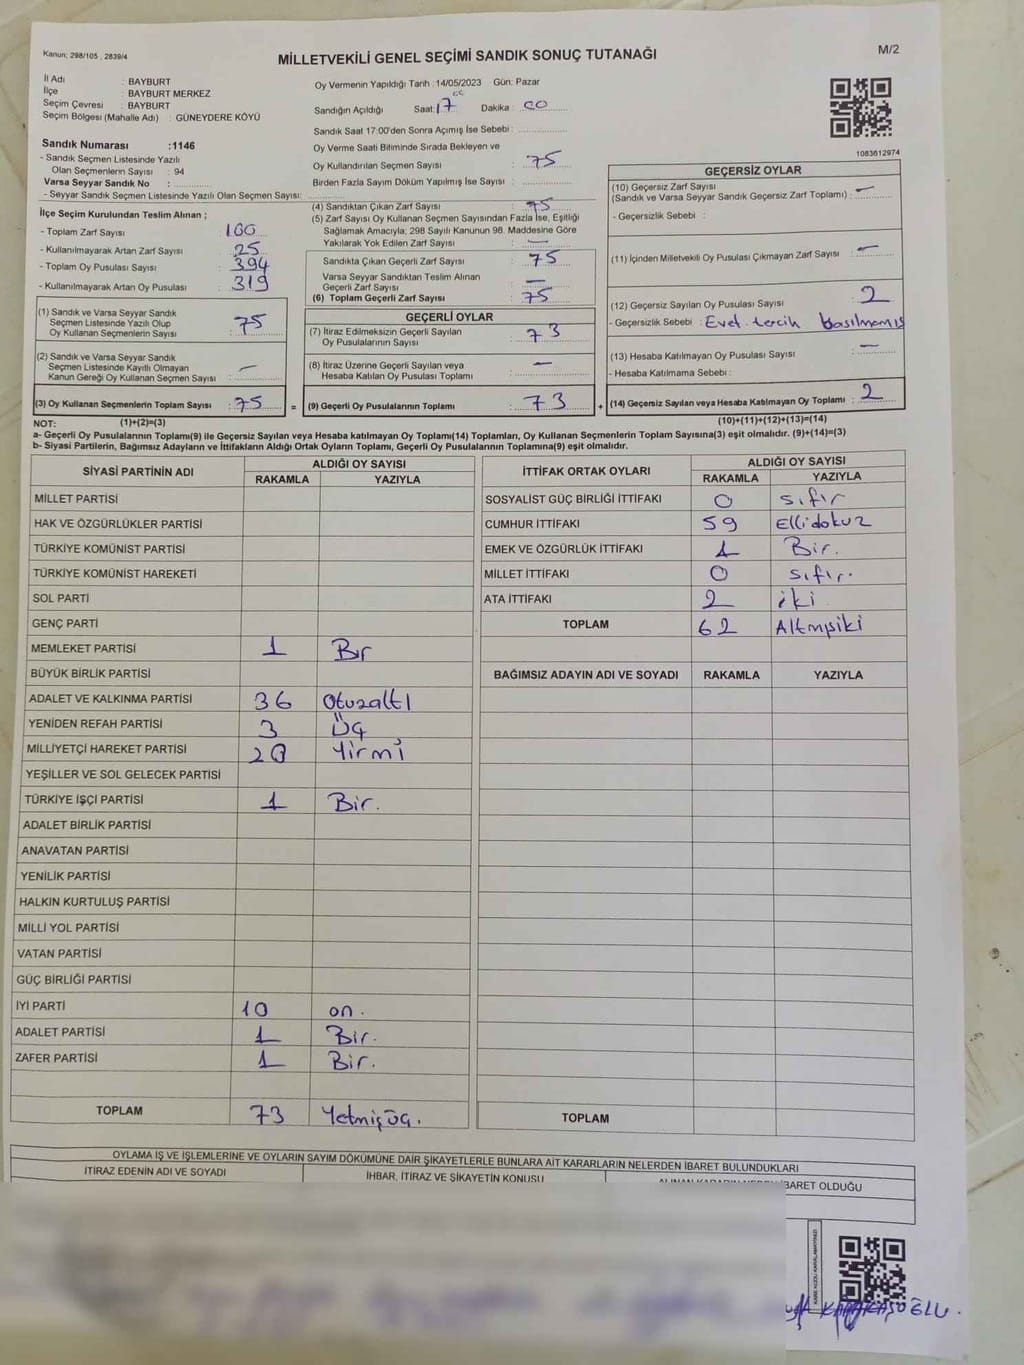 Kanun; 298/105 , 2839/4
MİLLETVEKİLİ GENEL SEÇİMİ SANDIK SONUÇ TUTANAĞI
M/2
İl Adı : BAYBURT
İlçe : BAYBURT MERKEZ
Seçim Çevresi : BAYBURT
Seçim Bölgesi (Mahalle Adı) : GÜNEYDERE KÖYÜ
Sandık Numarası :1146
- Sandık Seçmen Listesinde Yazılı
Olan Seçmenlerin Sayısı : 94
Varsa Seyyar Sandık No :
- Seyyar Sandık Seçmen Listesinde Yazılı Olan Seçmen Sayısı:
İlçe Seçim Kurulundan Teslim Alınan ;
- Toplam Zarf Sayısı : 100
- Kullanılmayarak Artan Zarf Sayısı : 25
- Toplam Oy Pusulası Sayısı : 394
- Kullanılmayarak Artan Oy Pusulası : 319
(1) Sandık ve Varsa Seyyar Sandık
Seçmen Listesinde Yazılı Olup
Oy Kullanan Seçmenlerin Sayısı : 75
(2) Sandık ve Varsa Seyyar Sandık
Seçmen Listesinde Kayıtlı Olmayan
Kanun Gereği Oy Kullanan Seçmen Sayısı : —
(3) Oy Kullanan Seçmenlerin Toplam Sayısı : 75 =
Oy Vermenin Yapıldığı Tarih :14/05/2023 Gün: Pazar
Sandığın Açıldığı Saat: 17 Dakika : 00
Sandık Saat 17:00'den Sonra Açımış İse Sebebi :
Oy Verme Saati Bitiminde Sırada Bekleyen ve
Oy Kullandırılan Seçmen Sayısı : 75
Birden Fazla Sayım Döküm Yapılmış İse Sayısı :
(4) Sandıktan Çıkan Zarf Sayısı : 75
(5) Zarf Sayısı Oy Kullanan Seçmen Sayısından Fazla İse, Eşitliği
Sağlamak Amacıyla; 298 Sayılı Kanunun 98. Maddesine Göre
Yakılarak Yok Edilen Zarf Sayısı : —
Sandıkta Çıkan Geçerli Zarf Sayısı : 75
Varsa Seyyar Sandıktan Teslim Alınan
Geçerli Zarf Sayısı : —
(6) Toplam Geçerli Zarf Sayısı : 75
GEÇERLİ OYLAR
(7) İtiraz Edilmeksizin Geçerli Sayılan
Oy Pusulalarının Sayısı : 73
(8) İtiraz Üzerine Geçerli Sayılan veya
Hesaba Katılan Oy Pusulası Toplamı : —
(9) Geçerli Oy Pusulalarının Toplamı : 73 +
1083612974
GEÇERSİZ OYLAR
(10) Geçersiz Zarf Sayısı
(Sandık ve Varsa Seyyar Sandık Geçersiz Zarf Toplamı) : —
- Geçersizlik Sebebi :
(11) İçinden Milletvekili Oy Pusulası Çıkmayan Zarf Sayısı : —
(12) Geçersiz Sayılan Oy Pusulası Sayısı : 2
- Geçersizlik Sebebi : Evet tercih basılmamış
(13) Hesaba Katılmayan Oy Pusulası Sayısı : —
- Hesaba Katılmama Sebebi :
(14) Geçersiz Sayılan veya Hesaba Katılmayan Oy Toplamı : 2
NOT: (1)+(2)=(3) (10)+(11)+(12)+(13)=(14)
a- Geçerli Oy Pusulalarının Toplamı(9) ile Geçersiz Sayılan veya Hesaba katılmayan Oy Toplamı(14) Toplamları, Oy Kullanan Seçmenlerin Toplam Sayısına(3) eşit olmalıdır. (9)+(14)=(3)
b- Siyasi Partilerin, Bağımsız Adayların ve İttifakların Aldığı Ortak Oyların Toplamı, Geçerli Oy Pusulalarının Toplamına(9) eşit olmalıdır.
SİYASİ PARTİNİN ADI ALDIĞI OY SAYISI
RAKAMLA YAZIYLA
MİLLET PARTİSİ
HAK VE ÖZGÜRLÜKLER PARTİSİ
TÜRKİYE KOMÜNİST PARTİSİ
TÜRKİYE KOMÜNİST HAREKETİ
SOL PARTİ
GENÇ PARTİ
MEMLEKET PARTİSİ 1 Bır
BÜYÜK BİRLİK PARTİSİ
ADALET VE KALKINMA PARTİSİ 36 Otuzaltı
YENİDEN REFAH PARTİSİ 3 Üç
MİLLİYETÇİ HAREKET PARTİSİ 20 Yirmi
YEŞİLLER VE SOL GELECEK PARTİSİ
TÜRKİYE İŞÇİ PARTİSİ 1 Bir.
ADALET BİRLİK PARTİSİ
ANAVATAN PARTİSİ
YENİLİK PARTİSİ
HALKIN KURTULUŞ PARTİSİ
MİLLİ YOL PARTİSİ
VATAN PARTİSİ
GÜÇ BİRLİĞİ PARTİSİ
İYİ PARTİ 10 on.
ADALET PARTİSİ 1 Bir.
ZAFER PARTİSİ 1 Bir.
TOPLAM 73 Yetmişüç.
İTTİFAK ORTAK OYLARI ALDIĞI OY SAYISI
RAKAMLA YAZIYLA
SOSYALİST GÜÇ BİRLİĞİ İTTİFAKI 0 sıfır
CUMHUR İTTİFAKI 59 Ellidokuz
EMEK VE ÖZGÜRLÜK İTTİFAKI 1 Bir.
MİLLET İTTİFAKI 0 sıfır.
ATA İTTİFAKI 2 iki
TOPLAM 62 Altmışiki
BAĞIMSIZ ADAYIN ADI VE SOYADI RAKAMLA YAZIYLA
TOPLAM
OYLAMA İŞ VE İŞLEMLERİNE VE OYLARIN SAYIM DÖKÜMÜNE DAİR ŞİKAYETLERLE BUNLARA AİT KARARLARIN NELERDEN İBARET BULUNDUKLARI
İTİRAZ EDENİN ADI VE SOYADI İHBAR, İTİRAZ VE ŞİKAYETİN KONUSU İBARET OLDUĞU
KARAKAŞOĞLU.